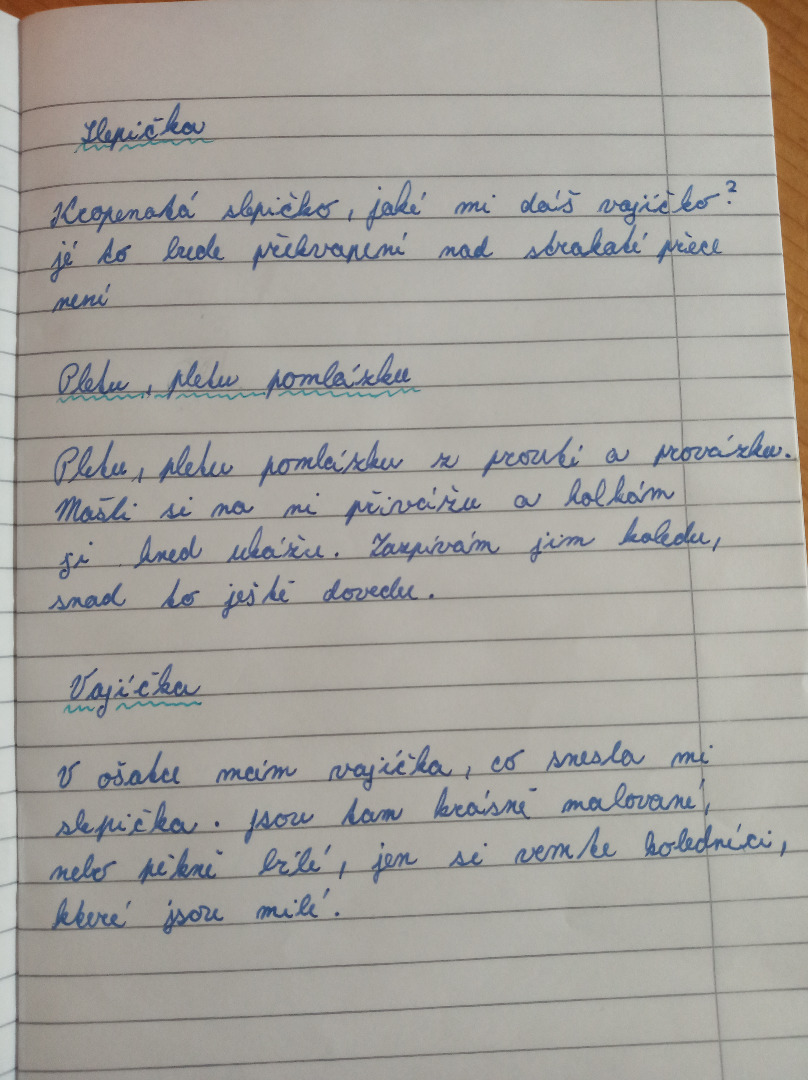 Slepička
Kropenatá slepičko, jaké mi dáš vajíčko?
jé to bude překvapení nad strakaté přece
není
Pletu, pletu pomlázku
Pletu, pletu pomlázku z proutí a provázku.
Mašli si na ni přivážu a holkám
ji hned ukážu. Zazpívám jim koledu,
snad to ještě dovedu.
Vajíčka
V ošatce mám vajíčka, co snesla mi
slepička. jsou tam krásně malované,
nebo pěkně bílé, jen si vemte koledníci,
které jsou milé.